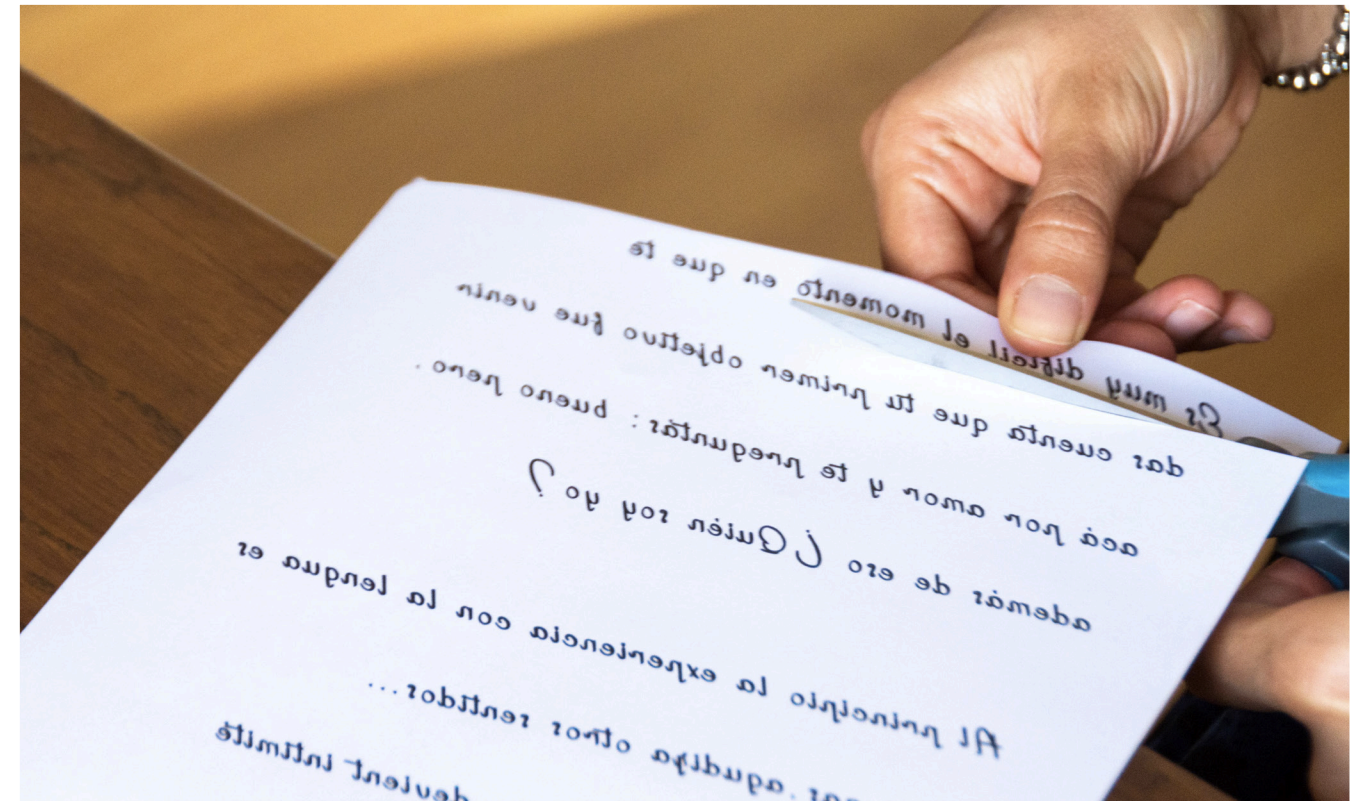 Es muy difícil el momento en que te
das cuenta que tu primer objetivo fue venir
acá por amor y te preguntás: bueno pero
además de eso ¿Quién soy yo?
Al principio la experiencia con la lengua es
agudiza otros sentidos...
devient intimité